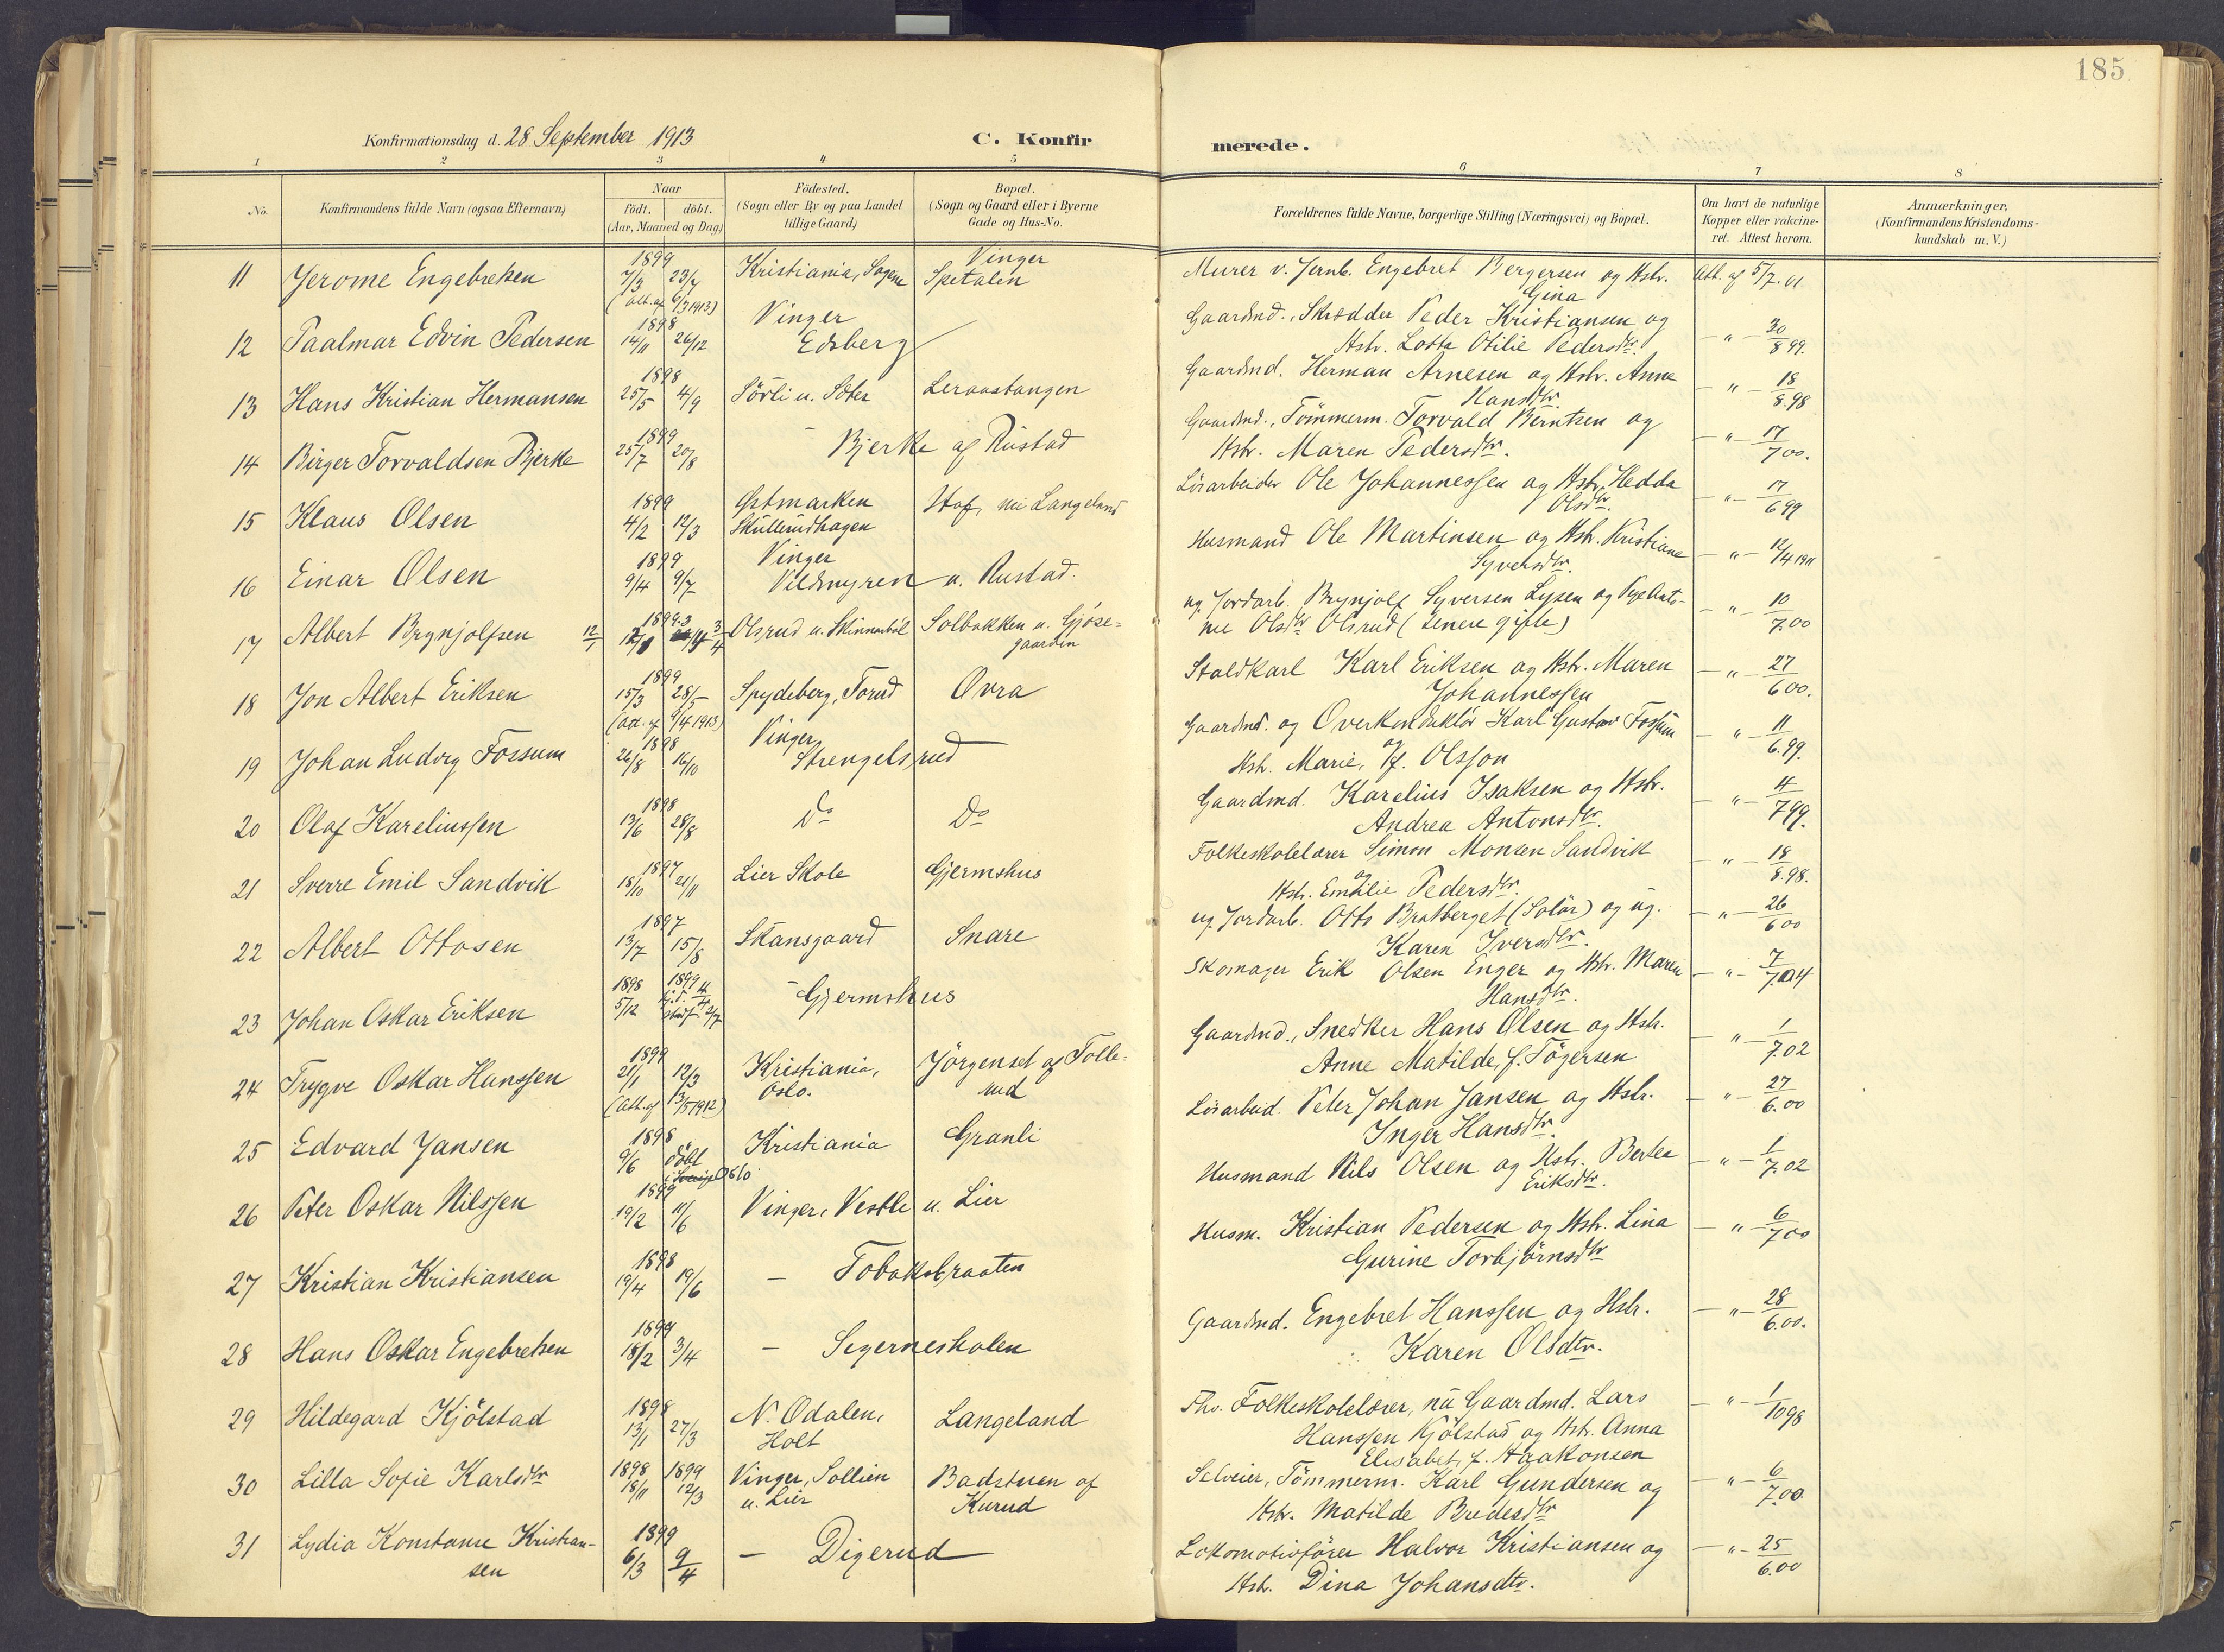 185
Konfirmationsdag d. 28 September 1913
C. Konfir
merede.
1 2 3 4 5 6 7 8
No.
Konfirmandens fulde Navn (ogsaa Efternavn)
Naar
födt. döbt.
(Aar, Maaned og Dag)
Födested.
(Sogn eller By og paa Landet
tillige Gaard)
Bopæl.
(Sogn og Gaard eller i Byerne
Gade og Hus-No.
Forældrenes fulde Navne, borgerlige Stilling (Næringsvei) og Bopæl.
Om havt de naturlige
Kopper eller vakcine-
ret. Attest herom.
Anmærkninger.
(Konfirmandens Kristendoms-
kundskab m. V.)
11 Jerome Engebretsen 1899 7/3 23/4 Kristiania, Sagene Vinger Spetalen
(att. af 6/3 1913)
Murer v. Jernb. Engebret Bergersen og Hstr. Att. af 5/7.01
Gina
12 Paalmar Edvin Pedersen 1898 14/11 26/12 Vinger Edsberg
Gaardmd., Skrædder Peder Kristiansen og
Hstr. Lotta Otilie Pedersdtr. — " — 30/8 99.
13 Hans Kristian Hermansen 1898 25/5 4/9 Sörli u. Sæter Leraastangen
Gaardmd. Herman Arnesen og Hstr. Anne
Hansdtr — " — 18/8.98
14 Birger Torvaldsen Bjerke 1899 25/7 20/8 – Bjerke af Rustad
Gaardmd., Tömmerm. Torvald Berntsen og
Hstr. Maren Pedersdtr. — " — 17/7 00.
15 Klaus Olsen 1899 4/2 12/3 Østmarken Skullerudhagen Hof, nu Langeland
Lösarbeider Ole Johannessen og Hstr. Hedda
Olsdtr. — " — 17/6 99
16 Einar Olsen 1899 9/4 9/7 Vinger Vildmyren u. Rustad.
Husmand Ole Martinsen og Hstr. Kristiane
Syversdtr. — " — 12/4 1911
17 Albert Brynjolfsen 12/1 1899 3/4 Olsrud u. Skinnarböl Solbakken u. Gjöse-
gaarden
ug. Jordarb. Brynjolf Syversen Lysen og Pige
Olsdtr Olsrud (senere gifte) — " — 10/7.00
18 Jon Albert Eriksen 1899 15/3 28/5 Spydeberg, Torud Øvra
(att. af 9/4 1913)
Staldkarl Karl Eriksen og Hstr. Maren
Johannessen — " — 27/6 00.
19 Johan Ludvig Fossum 1898 26/8 16/10 Vinger, Strengelsrud
Gaardmd. og Overkonduktör Karl Gustav Fossum
og
Hstr. Marie, f. Olsson — " — 11/6.99.
20 Olaf Kareliussen 1898 13/6 28/8 Do Do
Gaardmd. Karelius Isaksen og Hstr.
Andrea Antonsdtr. — " — 4/7 99.
21 Sverre Emil Sandvik 1897 18/10 21/11 Lier Skole Gjermshus
Folkeskolelærer Simon Monsen Sandvik
og
Hstr. Emilie Pedersdtr. — " — 18/8.98.
22 Albert Ottosen 1897 13/7 15/8 Skansgaard Snare
ug. Jordarb. Otto Bratberget (Solör) og ug.
Karen Iversdtr. — " — 26/6 00
23 Johan Oskar Eriksen 1898 5/12 1899 4/4 2/7 – Gjermshus
Skomager Erik Olsen Enger og Hstr. Maren
Hansdtr. — " — 7/7.04
24 Trygve Oskar Hanssen 1899 21/1 12/3 Kristiania, Oslo. Jörgenset af Tolle-
rud
(att. af 13/5 1912)
Gaardmd., Snedker Hans Olsen og Hstr.
Anne Matilde, f. Tögersen — " — 1/7.02
25 Edvard Jansen 1898 9/6 döbt i Sverige Oslo Kristiania Granli
Lösarbeid. Peter Johan Jansen og Hstr.
Inger Hansdtr. — " — 27/6.00
26 Peter Oskar Nilssen 1899 19/2 11/6 Vinger, Vestli u. Lier
Husmand Nils Olsen og Hstr. Bertea
Eriksdtr. — " — 1/7.02
27 Kristian Kristiansen 1898 19/4 19/6 – Tobaksbraaten
Husm. Kristian Pedersen og Hstr. Lina
Gurine Torbjörnsdtr — " — 6/7 00
28 Hans Oskar Engebretsen 1899 18/2 3/4 – Segerneskolen
Gaardmd. Engebret Hanssen og Hstr.
Karen Olsdtr. — " — 28/6.00.
29 Hildegard Kjölstad 1898 13/1 27/3 N. Odalen, Holt Langeland
Fhv. Folkeskolelærer, nu Gaardmd. Lars
Hanssen Kjölstad og Hstr. Anna
Elisabet, f. Haakonsen — " — 1/10 98
30 Lilla Sofie Karlsdtr 1898 18/11 1899 12/3 Vinger, Sollien u. Lier Badstuen af
Kurud
Selveier, Tömmerm. Karl Gundersen og
Hstr. Matilde Bredesdtr — " — 6/7.00
31 Lydia Konstanse Kristian-
sen 1899 6/3 9/4 – Digerud
Lokomotivförer Halvor Kristiansen og
Hstr. Dina Johansdtr. — " — 25/6.00